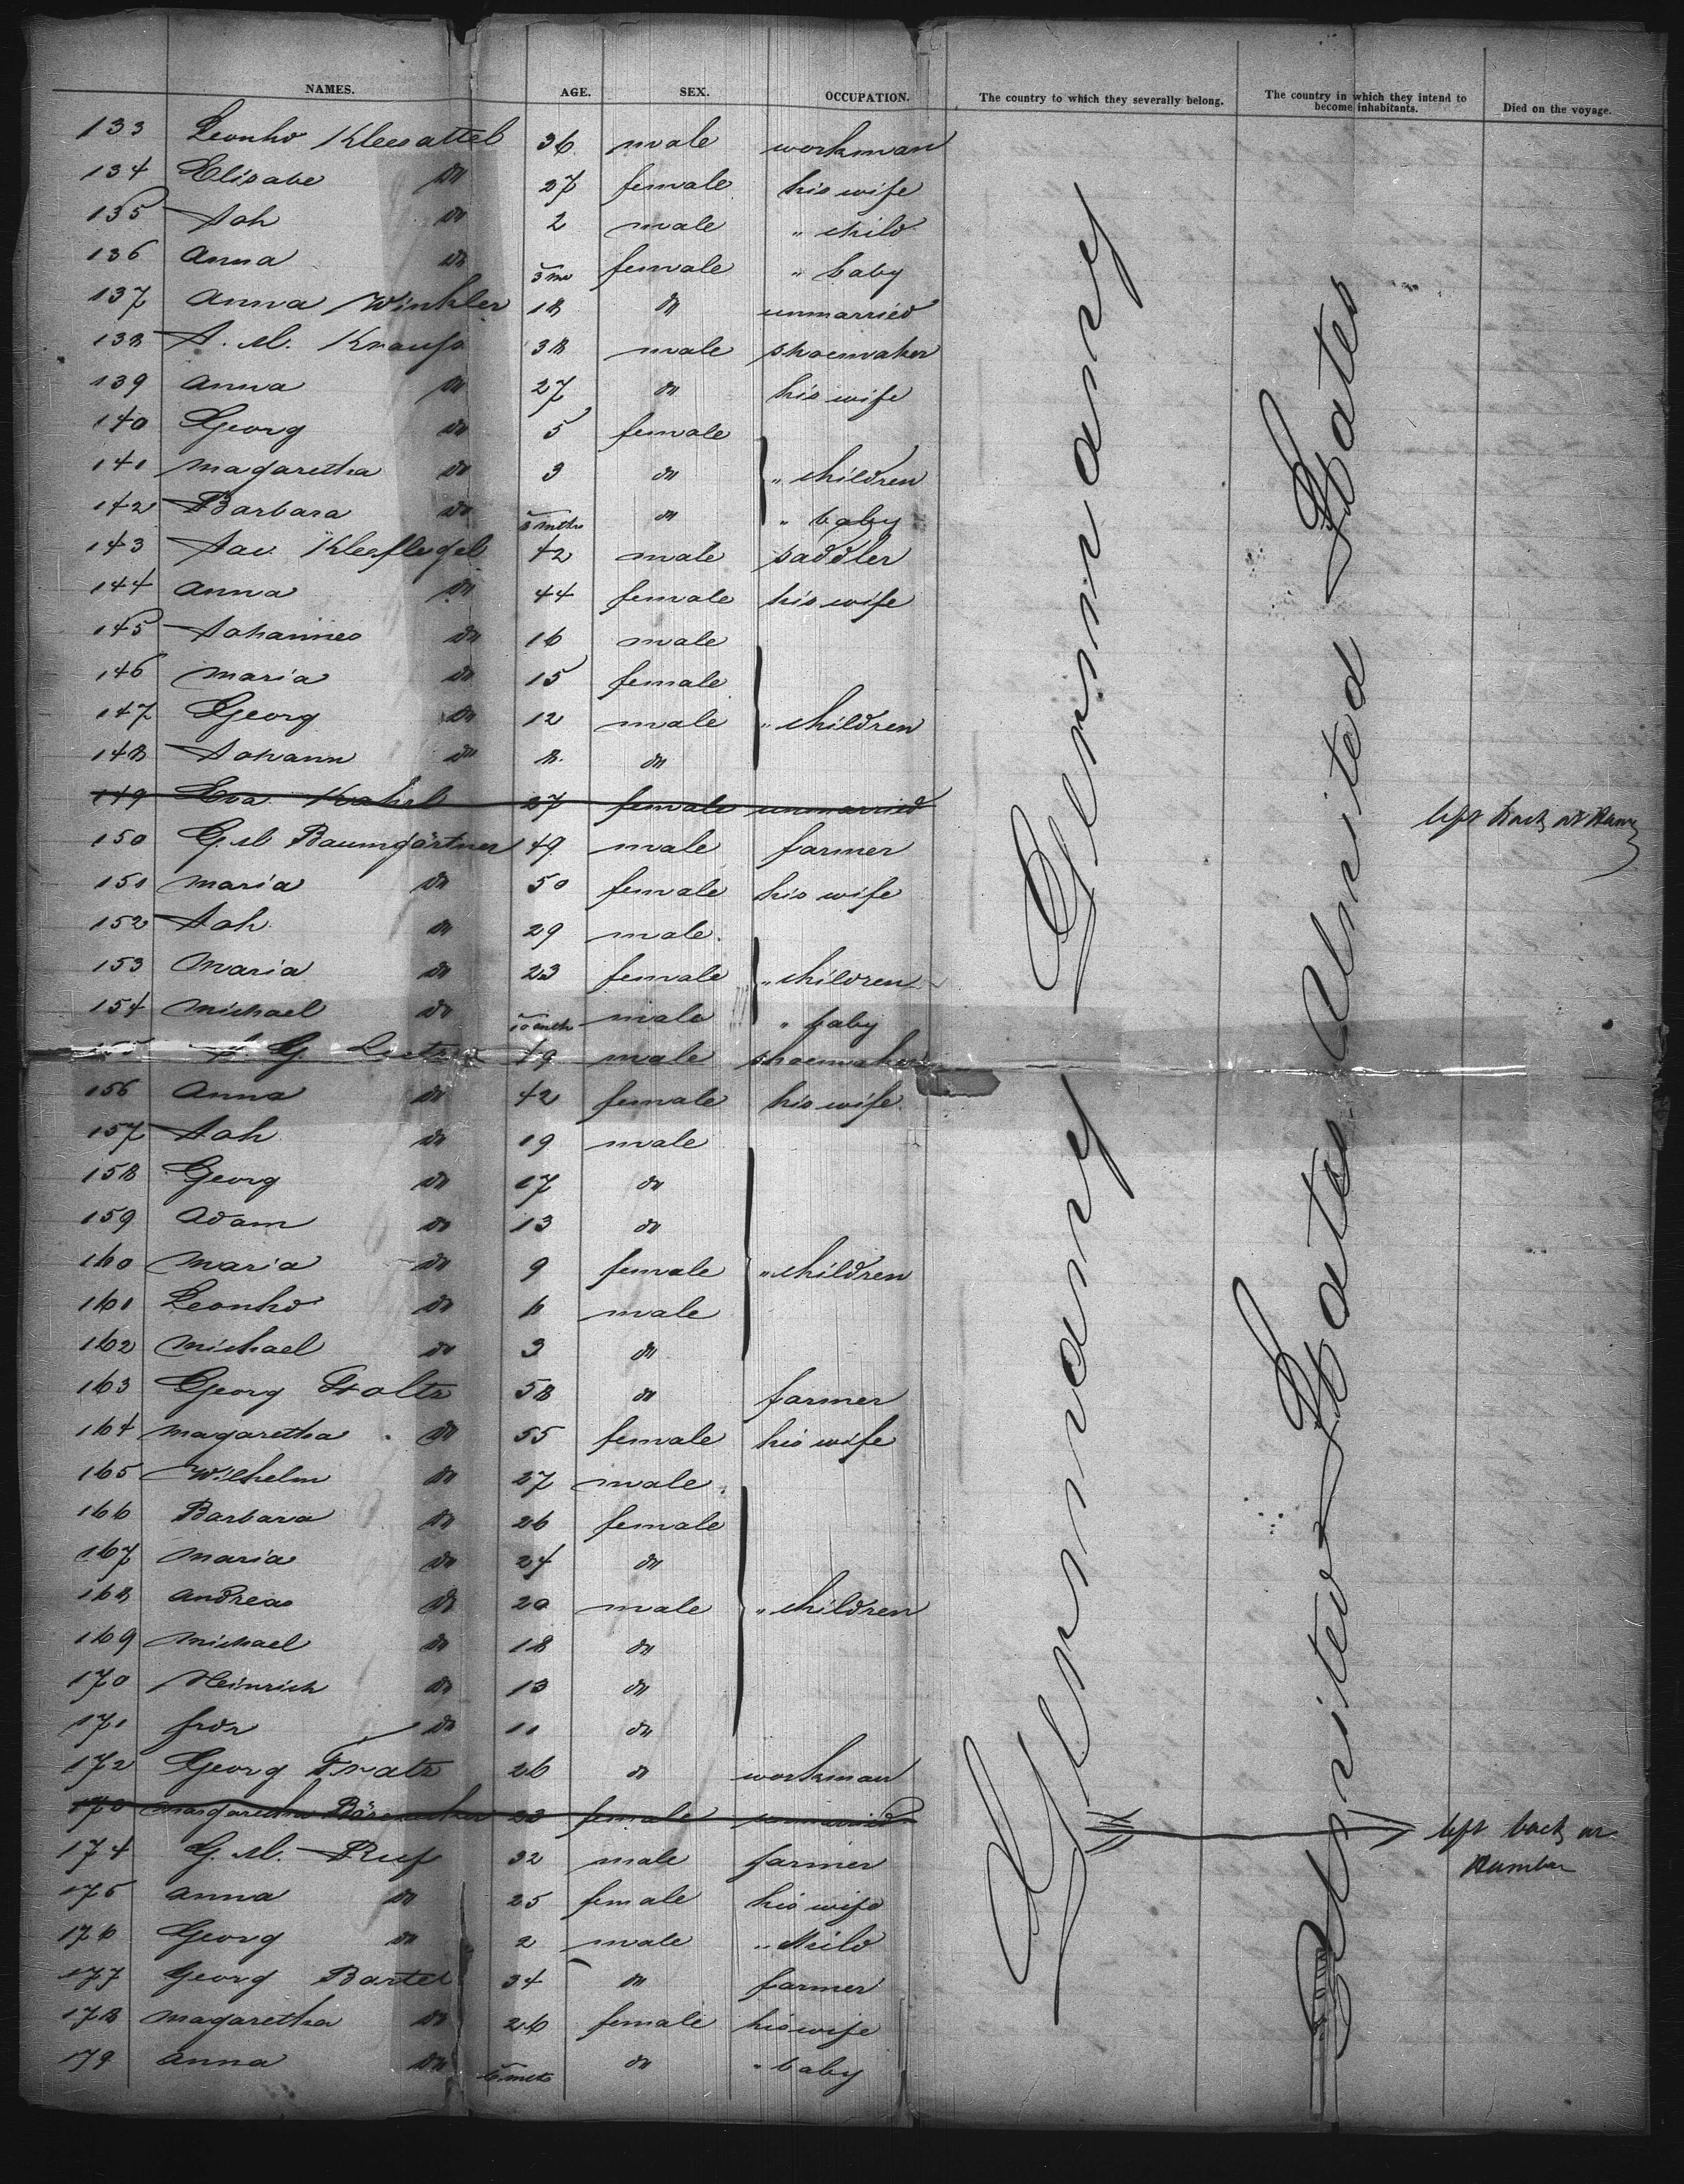 NAMES. AGE. SEX. OCCUPATION. The country to which they severally belong. The country in which they intend to become inhabitants. Died on the voyage.
133 Leonhd Kleesattel 36 male workman
134 Elisabe do 27 female his wife
135 Joh do 2 male " child
136 Anna do female " baby
137 Anna Winkler 18 do unmarried
138 J. M. Krauss 38 male shoemaker
139 Anna do 27 do his wife
140 Georg do 5 female
141 Magaretha do 3 do " children
142 Barbara do mths do " baby
143 Jac. 42 male saddler
144 Anna do 44 female his wife
145 Johannes do 16 male
146 Maria do 15 female
147 Georg do 12 male " children
148 Johann do 8. do
149 Eva 27 female unmarried left back at
150 G. M. Baumgärtner 49 male farmer
151 Maria do 50 female his wife
152 Joh. do 29 male.
153 Maria do 23 female " children
154 Michael do 10 mth male " baby
155 J. G. 49 male shoemaker
156 Anna do 42 female his wife
157 Joh. do 19 male
158 Georg do 17 do
159 Adam do 13 do
160 Maria do 9 female " children
161 Leonhd do 6 male
162 Michael do 3 do
163 Georg 58 do farmer
164 Magaretha do 55 female his wife
165 Wilhelm do 27 male
166 Barbara do 26 female
167 Maria do 24 do
168 Andreas do 20 male " children
169 Michael do 18 do
170 Heinrich do 13 do
171 Frdr do 11 do
172 Georg Tratz 26 do workman
173 Margaretha 23 female unmarried left back at
174 G. M. Ruf 32 male farmer
175 Anna do 25 female his wife
176 Georg do 2 male " child
177 Georg Bartel 34 do farmer
178 Magaretha do 26 female his wife
179 Anna do 6 mth do " baby
Germany Germany
United States United States